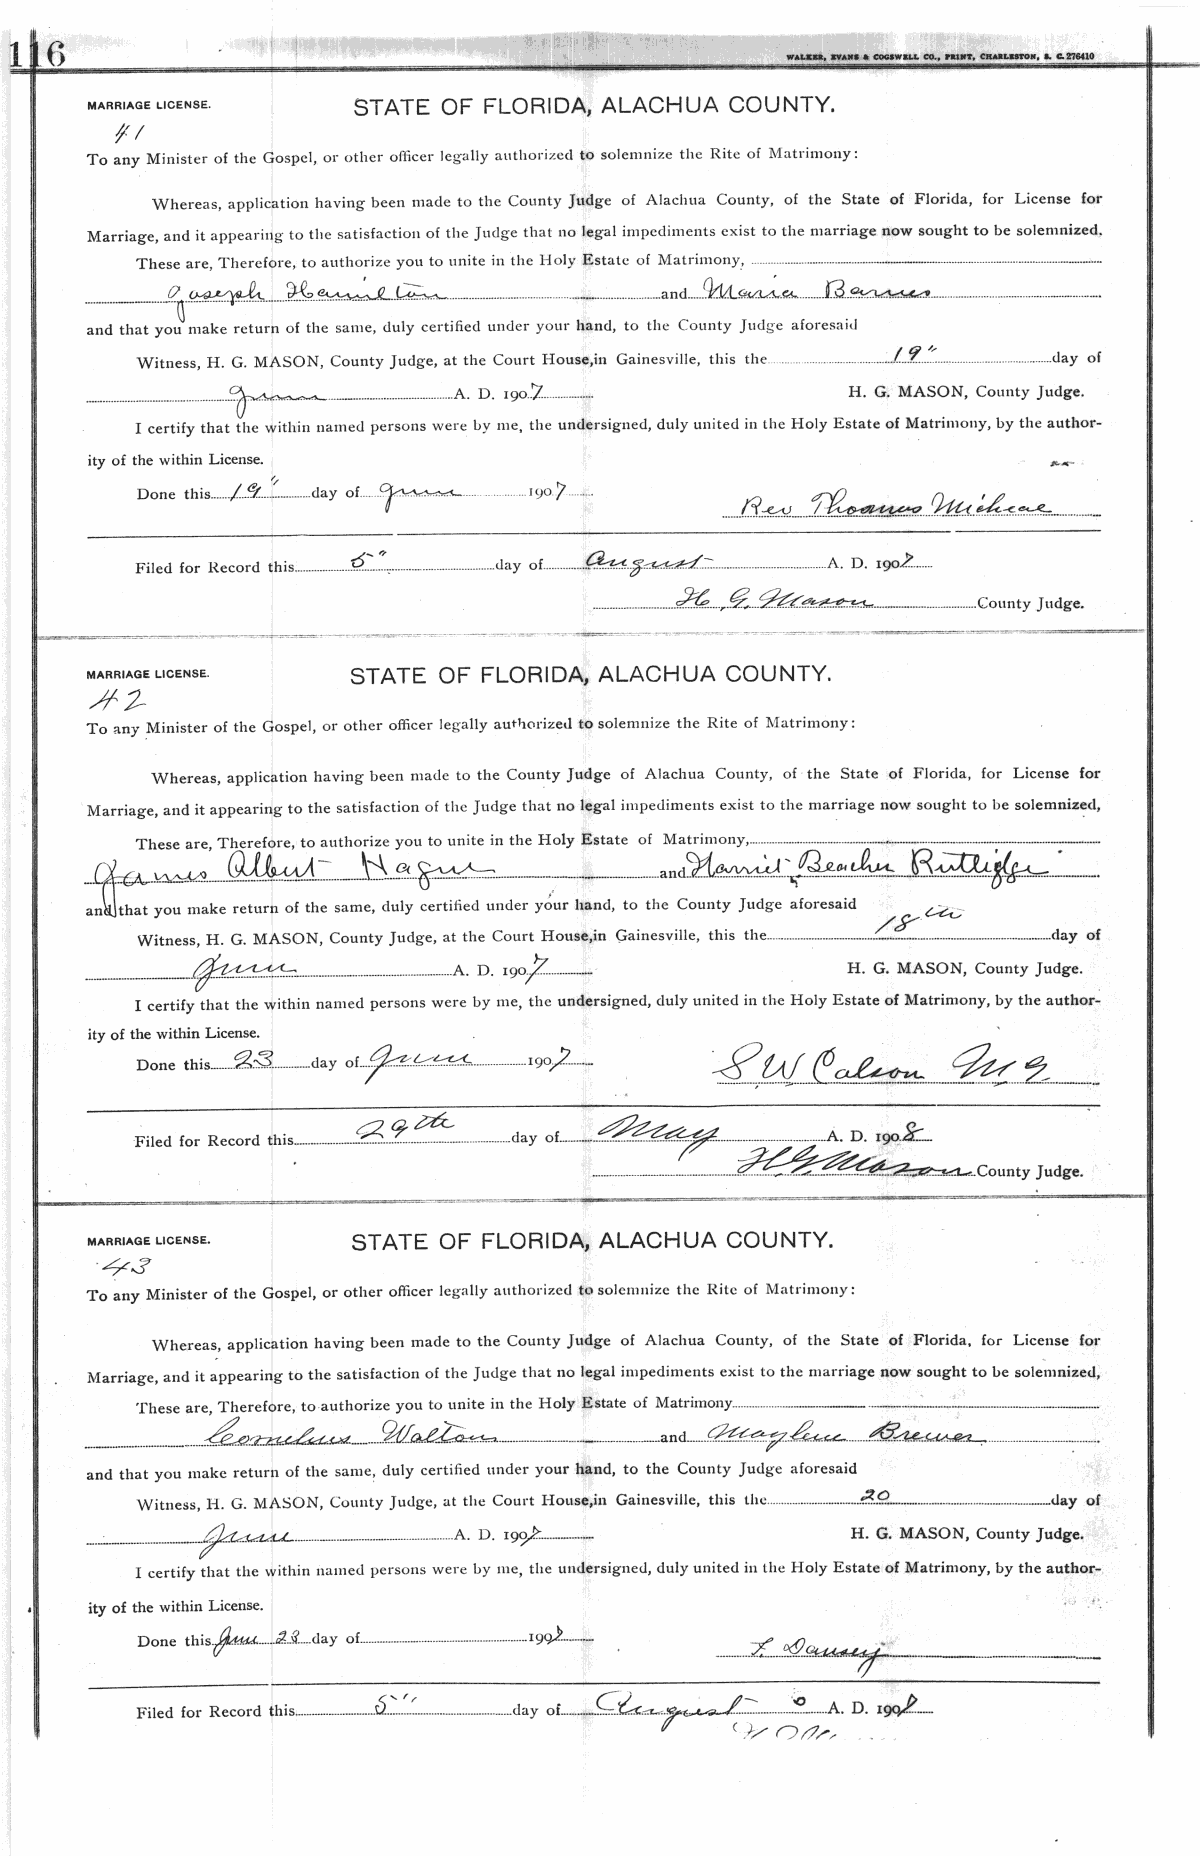 116
WALKER, EVANS & COGSWELL CO., PRINT, CHARLESTON, S. C. 276410
MARRIAGE LICENSE. STATE OF FLORIDA, ALACHUA COUNTY.
41
To any Minister of the Gospel, or other officer legally authorized to solemnize the Rite of Matrimony:
Whereas, application having been made to the County Judge of Alachua County, of the State of Florida, for License for
Marriage, and it appearing to the satisfaction of the Judge that no legal impediments exist to the marriage now sought to be solemnized.
These are, Therefore, to authorize you to unite in the Holy Estate of Matrimony,
Joseph Hamilton and Maria Barnes
and that you make return of the same, duly certified under your hand, to the County Judge aforesaid
Witness, H. G. MASON, County Judge, at the Court House, in Gainesville, this the 19" day of
June A. D. 1907 H. G. MASON, County Judge.
I certify that the within named persons were by me, the undersigned, duly united in the Holy Estate of Matrimony, by the author-
ity of the within License.
Done this 19" day of June 1907
Rev Thomas Micheal
Filed for Record this 5" day of August A. D. 1907
H. G. Mason County Judge.
MARRIAGE LICENSE. STATE OF FLORIDA, ALACHUA COUNTY.
42
To any Minister of the Gospel, or other officer legally authorized to solemnize the Rite of Matrimony:
Whereas, application having been made to the County Judge of Alachua County, of the State of Florida, for License for
Marriage, and it appearing to the satisfaction of the Judge that no legal impediments exist to the marriage now sought to be solemnized,
These are, Therefore, to authorize you to unite in the Holy Estate of Matrimony,
James Albert Hague and Harriet Beacher Rutlidge
and that you make return of the same, duly certified under your hand, to the County Judge aforesaid
Witness, H. G. MASON, County Judge, at the Court House, in Gainesville, this the 18th day of
June A. D. 1907 H. G. MASON, County Judge.
I certify that the within named persons were by me, the undersigned, duly united in the Holy Estate of Matrimony, by the author-
ity of the within License.
Done this 23 day of June 1907 S W Calson M. G.
Filed for Record this 29th day of May A. D. 1908
H. G. Mason County Judge.
MARRIAGE LICENSE. STATE OF FLORIDA, ALACHUA COUNTY.
43
To any Minister of the Gospel, or other officer legally authorized to solemnize the Rite of Matrimony:
Whereas, application having been made to the County Judge of Alachua County, of the State of Florida, for License for
Marriage, and it appearing to the satisfaction of the Judge that no legal impediments exist to the marriage now sought to be solemnized,
These are, Therefore, to authorize you to unite in the Holy Estate of Matrimony
Cornelius Walton and Maylene Brewer
and that you make return of the same, duly certified under your hand, to the County Judge aforesaid
Witness, H. G. MASON, County Judge, at the Court House, in Gainesville, this the 20 day of
June A. D. 1907 H. G. MASON, County Judge.
I certify that the within named persons were by me, the undersigned, duly united in the Holy Estate of Matrimony, by the author-
ity of the within License.
Done this June 23 day of 1907
F. Dansey
Filed for Record this 5" day of August A. D. 1907